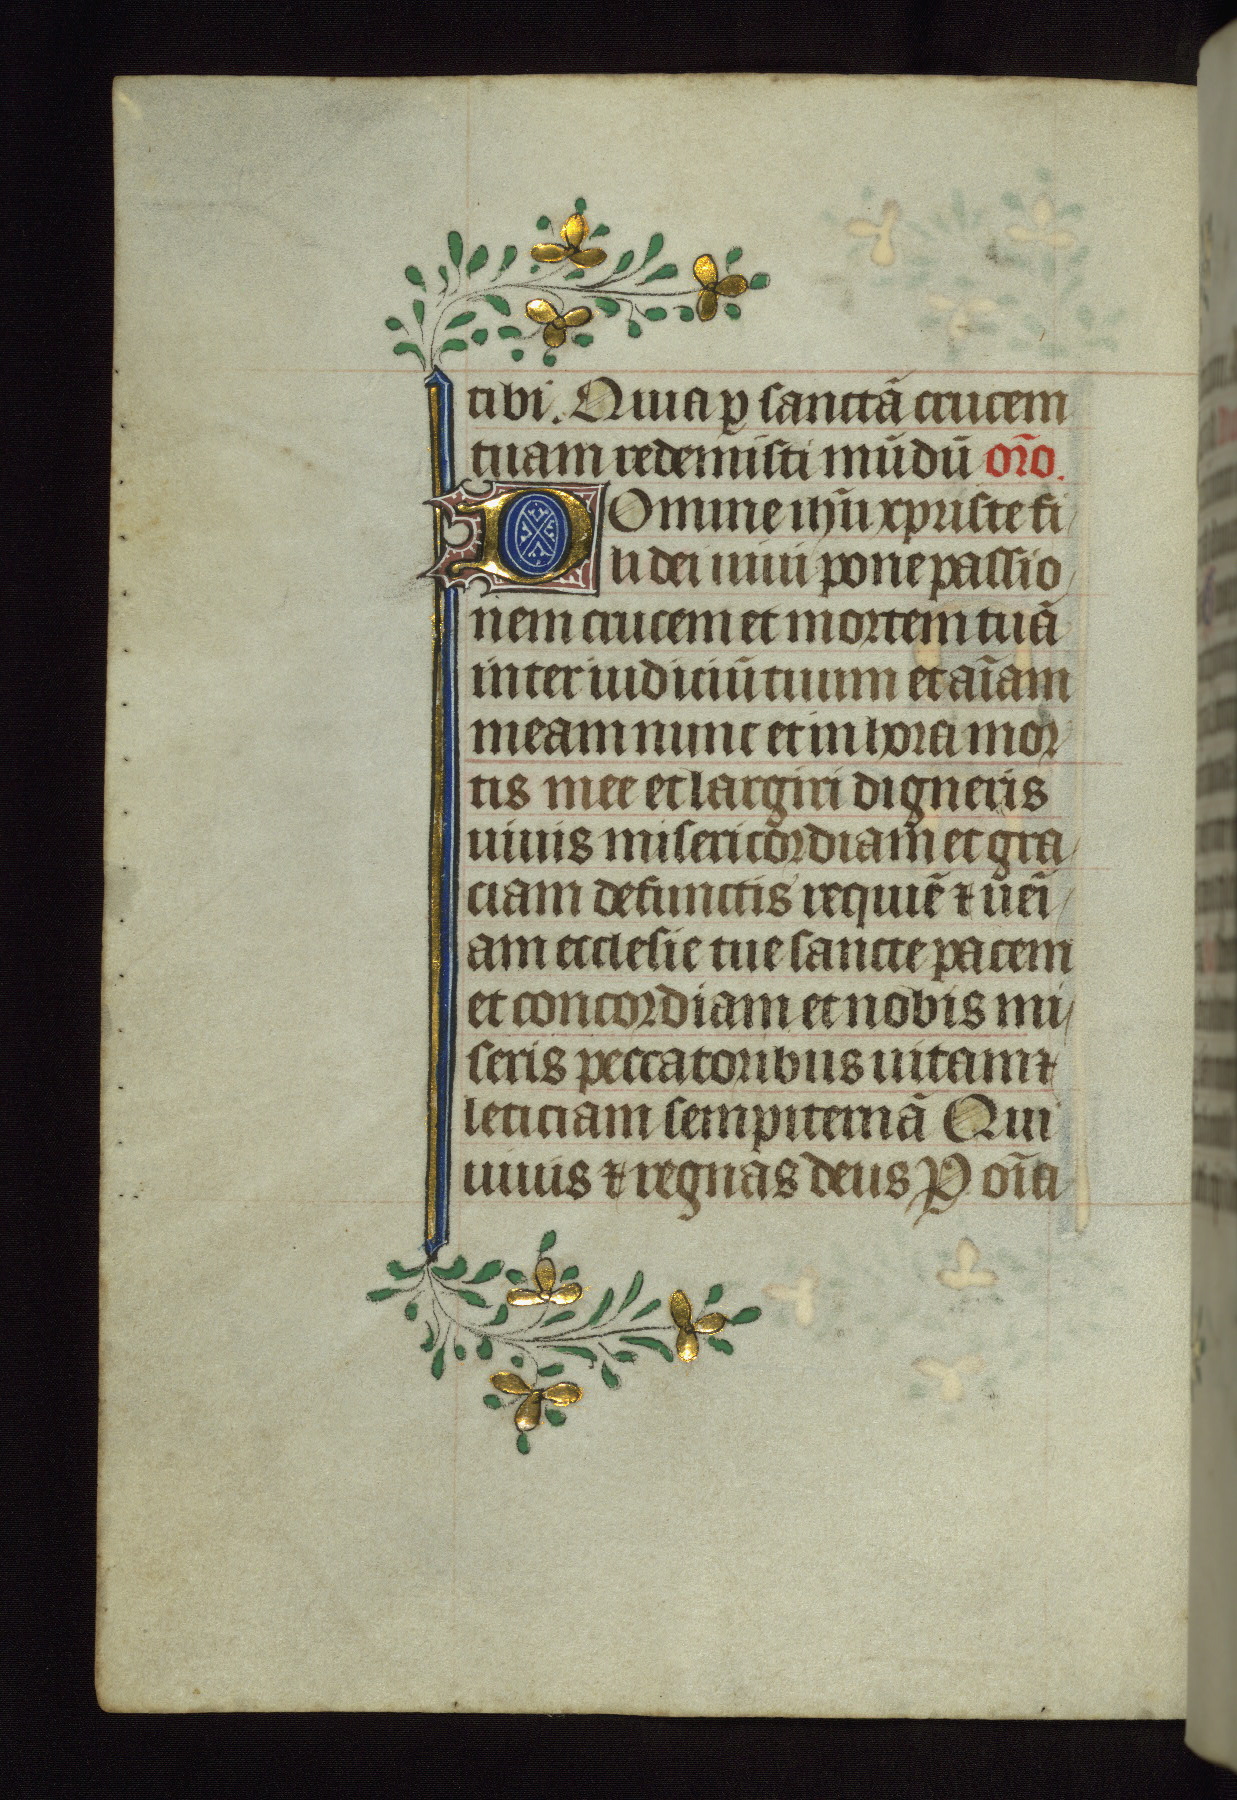 tibi. Quia ꝑ sanctā crucem
tuam redemisti mūdū or̄o.
DOmine ihū xpriste fi
li dei uiui pone passio
nem crucem et mortem tuā
inter iudiciū tuum et aīam
meam nunc et in hora mor
tis mee et largiri digneris
uiuis misericordiam et gra
ciam defunctis requiē ⁊ uēi
am ecclesie tue sancte pacem
et concordiam et nobis mi
seris peccatoribus uitam ⁊
leticiam sempiternā Qui
uiuis ⁊ regnas deus P oīa